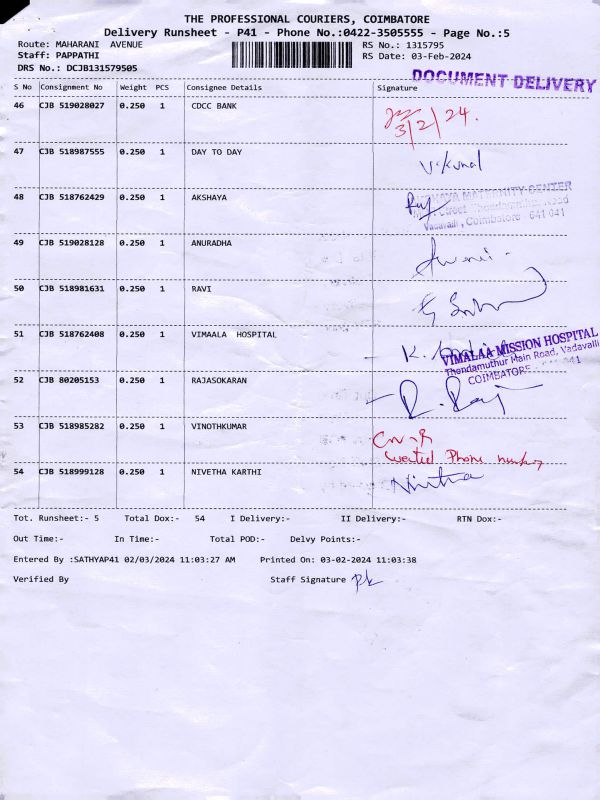 THE PROFESSIONAL COURIERS, COIMBATORE
Delivery Runsheet - P41 - Phone No.:0422-3505555 - Page No.:5
Route: MAHARANI AVENUE RS No.: 1315795
Staff: PAPPATHI RS Date: 03-Feb-2024
DRS No.: DCJB131579505
DOCUMENT DELIVERY
S No Consignment No Weight PCS Consignee Details Signature
46 CJB 519028027 0.250 1 CDCC BANK
3/2/24.
47 CJB 518987555 0.250 1 DAY TO DAY
48 CJB 518762429 0.250 1 AKSHAYA
MATERNITY CENTER
Vadavalli, Coimbatore - 641 041
49 CJB 519028128 0.250 1 ANURADHA
50 CJB 518981631 0.250 1 RAVI
51 CJB 518762408 0.250 1 VIMAALA HOSPITAL
VIMALAA MISSION HOSPITAL
Thondamuthur Main Road, Vadavalli
COIMBATORE
52 CJB 80205153 0.250 1 RAJASOKARAN
R. Raj
53 CJB 518985282 0.250 1 VINOTHKUMAR
Phone number
54 CJB 518999128 0.250 1 NIVETHA KARTHI
Nivetha
Tot. Runsheet:- 5 Total Dox:- 54 I Delivery:- II Delivery:- RTN Dox:-
Out Time:- In Time:- Total POD:- Delvy Points:-
Entered By :SATHYAP41 02/03/2024 11:03:27 AM Printed On: 03-02-2024 11:03:38
Verified By Staff Signature